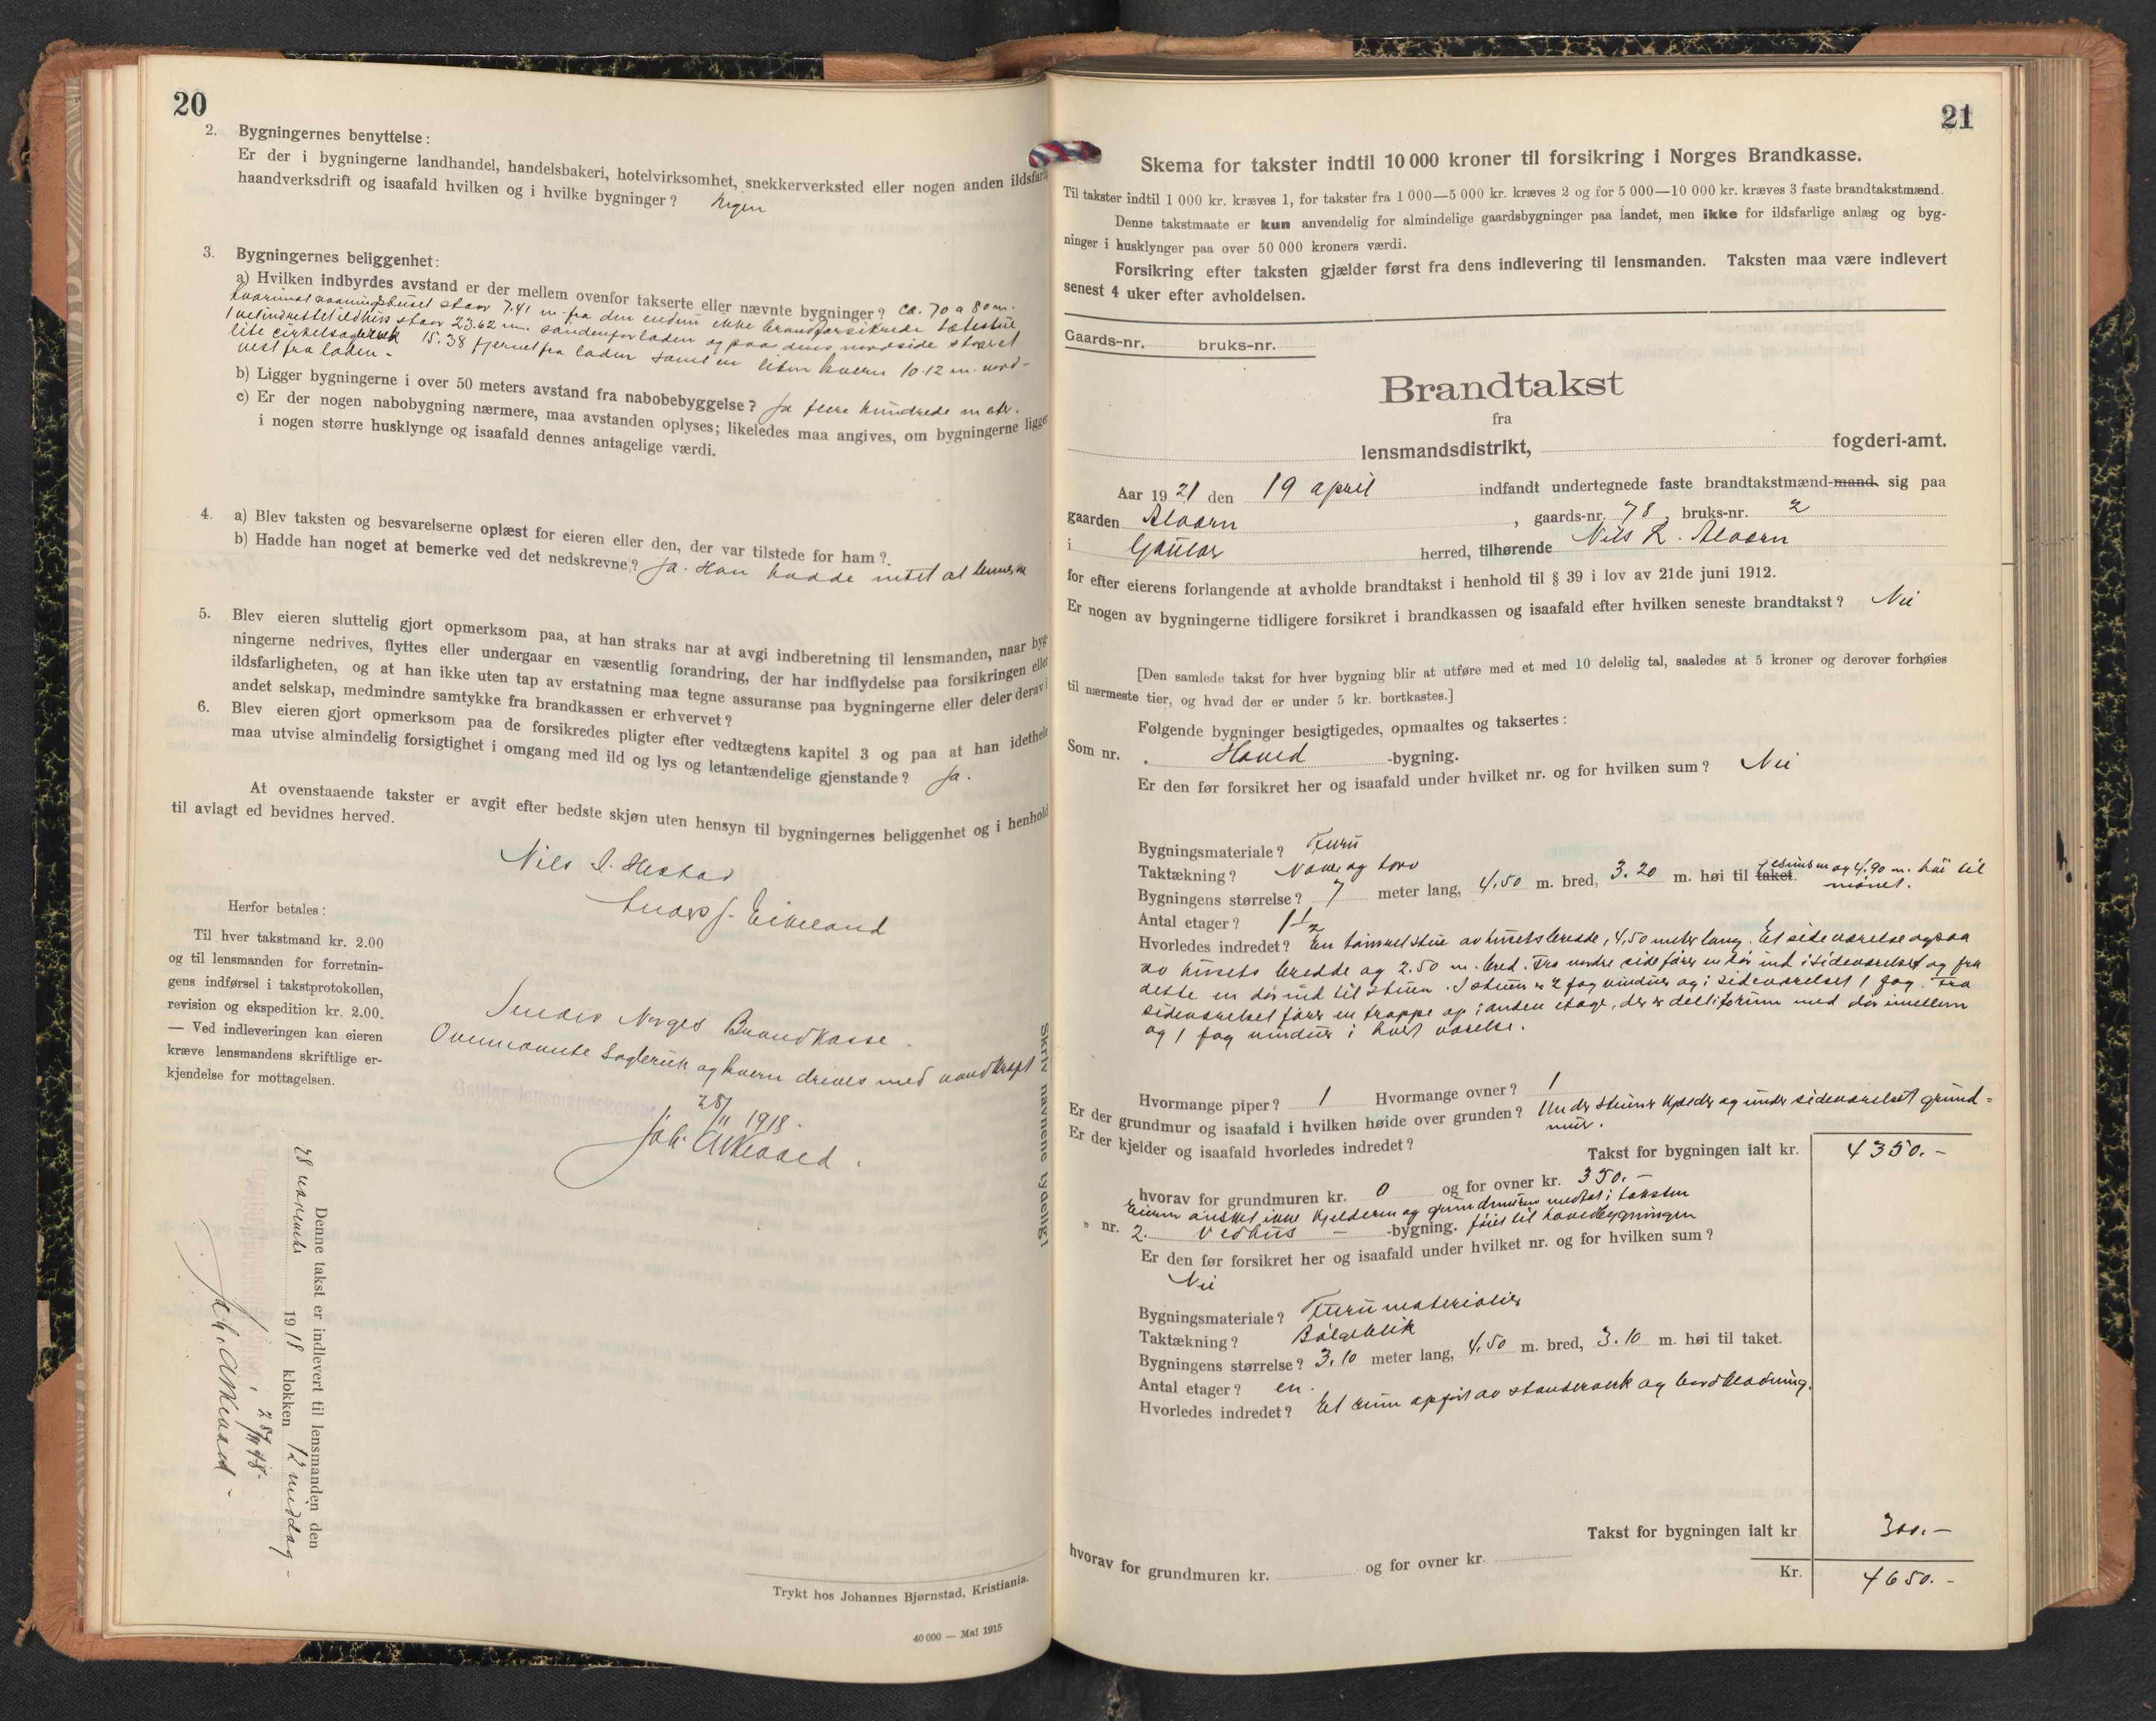 20
2. Bygningernes benyttelse:
Er der i bygningerne landhandel, handelsbakeri, hotelvirksomhet, snekkerverksted eller nogen anden ildsfarlig
haandverksdrift og isaafald hvilken og i hvilke bygninger? Ingen
3. Bygningernes beliggenhet:
a) Hvilken indbyrdes avstand er der mellem ovenfor takserte eller nævnte bygninger? ca. 70 a 80 m.
hvorimot vaaningshuset staar 7.41 m. fra den endnu ikke brandforsikrede
staar 23.62 m. søndenfor laden og paa dens nordside staar et
lite cirkelsagbruk 15.38 fjernet fra laden samt en liten kvern 10-12 m. nord-
vest fra laden -
b) Ligger bygningerne i over 50 meters avstand fra nabobebyggelse? Ja flere hundrede meter.
c) Er der nogen nabobygning nærmere, maa avstanden oplyses; likeledes maa angives, om bygningerne ligger
i nogen større husklynge og isaafald dennes antagelige værdi.
4. a) Blev taksten og besvarelserne oplæst for eieren eller den, der var tilstede for ham?
b) Hadde han noget at bemerke ved det nedskrevne? Ja. Han hadde intet at bemerke
5. Blev eieren sluttelig gjort opmerksom paa, at han straks har at avgi indberetning til lensmanden, naar byg-
ningerne nedrives, flyttes eller undergaar en væsentlig forandring, der har indflydelse paa forsikringen eller
ildsfarligheten, og at han ikke uten tap av erstatning maa tegne assuranse paa bygningerne eller deler derav i
andet selskap, medmindre samtykke fra brandkassen er erhvervet?
6. Blev eieren gjort opmerksom paa de forsikredes pligter efter vedtægtens kapitel 3 og paa at han idethele
maa utvise almindelig forsigtighet i omgang med ild og lys og letantændelige gjenstande? Ja.
At ovenstaaende takster er avgit efter bedste skjøn uten hensyn til bygningernes beliggenhet og i henhold
til avlagt ed bevidnes herved.
Nils I. Hestad
Anders J. Eikeland
Herfor betales:
Til hver takstmand kr. 2.00
og til lensmanden for forretnin-
gens indførsel i takstprotokollen,
revision og ekspedition kr. 2.00.
— Ved indleveringen kan eieren
kræve lensmandens skriftlige er-
kjendelse for mottagelsen.
Sendes Norges Brandkasse.
Ovennævnte Sagbruk og kvern drives med vandkraft
Gaular lensmandskontor
28/11 1918.
Joh. Arkvard.
Skriv navnene tydelig!
Denne takst er indlevert til lensmanden den
28 november 1918 klokken 12 middag -
28/11 18.
Joh. Arkvard -
Trykt hos Johannes Bjørnstad, Kristiania.
40 000 — Mai 1915
21
Skema for takster indtil 10 000 kroner til forsikring i Norges Brandkasse.
Til takster indtil 1 000 kr. kræves 1, for takster fra 1 000—5 000 kr. kræves 2 og for 5 000—10 000 kr. kræves 3 faste brandtakstmænd.
Denne takstmaate er kun anvendelig for almindelige gaardsbygninger paa landet, men ikke for ildsfarlige anlæg og byg-
ninger i husklynger paa over 50 000 kroners værdi.
Forsikring efter taksten gjælder først fra dens indlevering til lensmanden. Taksten maa være indlevert
senest 4 uker efter avholdelsen.
Gaards-nr. bruks-nr.
Brandtakst
fra
lensmandsdistrikt, fogderi-amt.
Aar 1921 den 19 april indfandt undertegnede faste brandtakstmænd-mand sig paa
gaarden Alværn, gaards-nr. 78, bruks-nr. 2
i Gaular herred, tilhørende Nils L. Alværn
for efter eierens forlangende at avholde brandtakst i henhold til § 39 i lov av 21de juni 1912.
Er nogen av bygningerne tidligere forsikret i brandkassen og isaafald efter hvilken seneste brandtakst? Nei
[Den samlede takst for hver bygning blir at utføre med et med 10 delelig tal, saaledes at 5 kroner og derover forhøies
til nærmeste tier, og hvad der er under 5 kr. bortkastes.]
Følgende bygninger besigtigedes, opmaaltes og taksertes:
Som nr. Hoved -bygning.
Er den før forsikret her og isaafald under hvilket nr. og for hvilken sum? Nei
Bygningsmateriale? Furu
Taktækning? Næver og torv
Bygningens størrelse? 7 meter lang, 4.50 m. bred, 3.20 m. høi til taket. gesimsen og 4.90 m. høi til
mønet.
Antal etager? 1½
Hvorledes indredet? En tømmerstue av husets bredde, 4,50 meter lang. Et sideværelse ogsaa
av husets bredde og 2.50 m. bred. Fra nordre side fører en dør ind i sideværelset og fra
dette en dør ind til stuen. I stuen er 2 fag vinduer og i sideværelset 1 fag. Fra
sideværelset fører en trappe op i anden etage, der er delt i to rum med dør imellem
og 1 fag vinduer i hvert værelse.
Hvormange piper? 1 Hvormange ovner? 1
Er der grundmur og isaafald i hvilken høide over grunden? Under stuen kjelder og under sideværelset grund-
mur.
Er der kjelder og isaafald hvorledes indredet?
Takst for bygningen ialt kr. 4350.-
hvorav for grundmuren kr. 0 og for ovner kr. 350.-
Eieren ønsket ikke kjelderen og grundmuren medtat i taksten
" nr. 2. Vedhus - -bygning. føiet til hovedbygningen
Er den før forsikret her og isaafald under hvilket nr. og for hvilken sum?
Nei
Bygningsmateriale? Furu materialier
Taktækning? Bølgeblik
Bygningens størrelse? 3.10 meter lang, 4.50 m. bred, 3.10 m. høi til taket.
Antal etager? en.
Hvorledes indredet? Et rum opført av stenderverk og bordklædning.
Takst for bygningen ialt kr 300.-
hvorav for grundmuren kr. og for ovner kr.
Kr. 4650.-